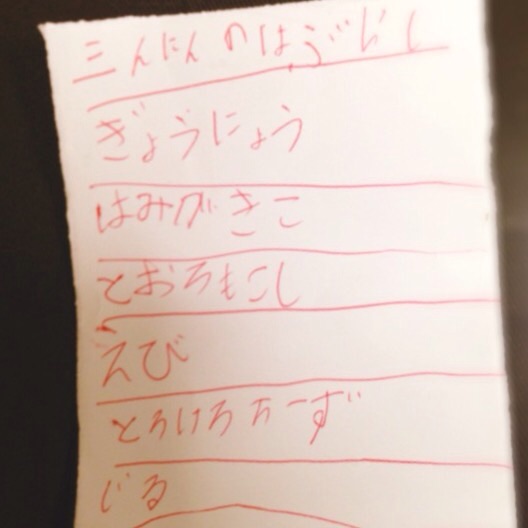 三んにんのはぶにし
ぎょうにょう
はみがきこ
とおろもこし
えび
とろけろちーず
じる